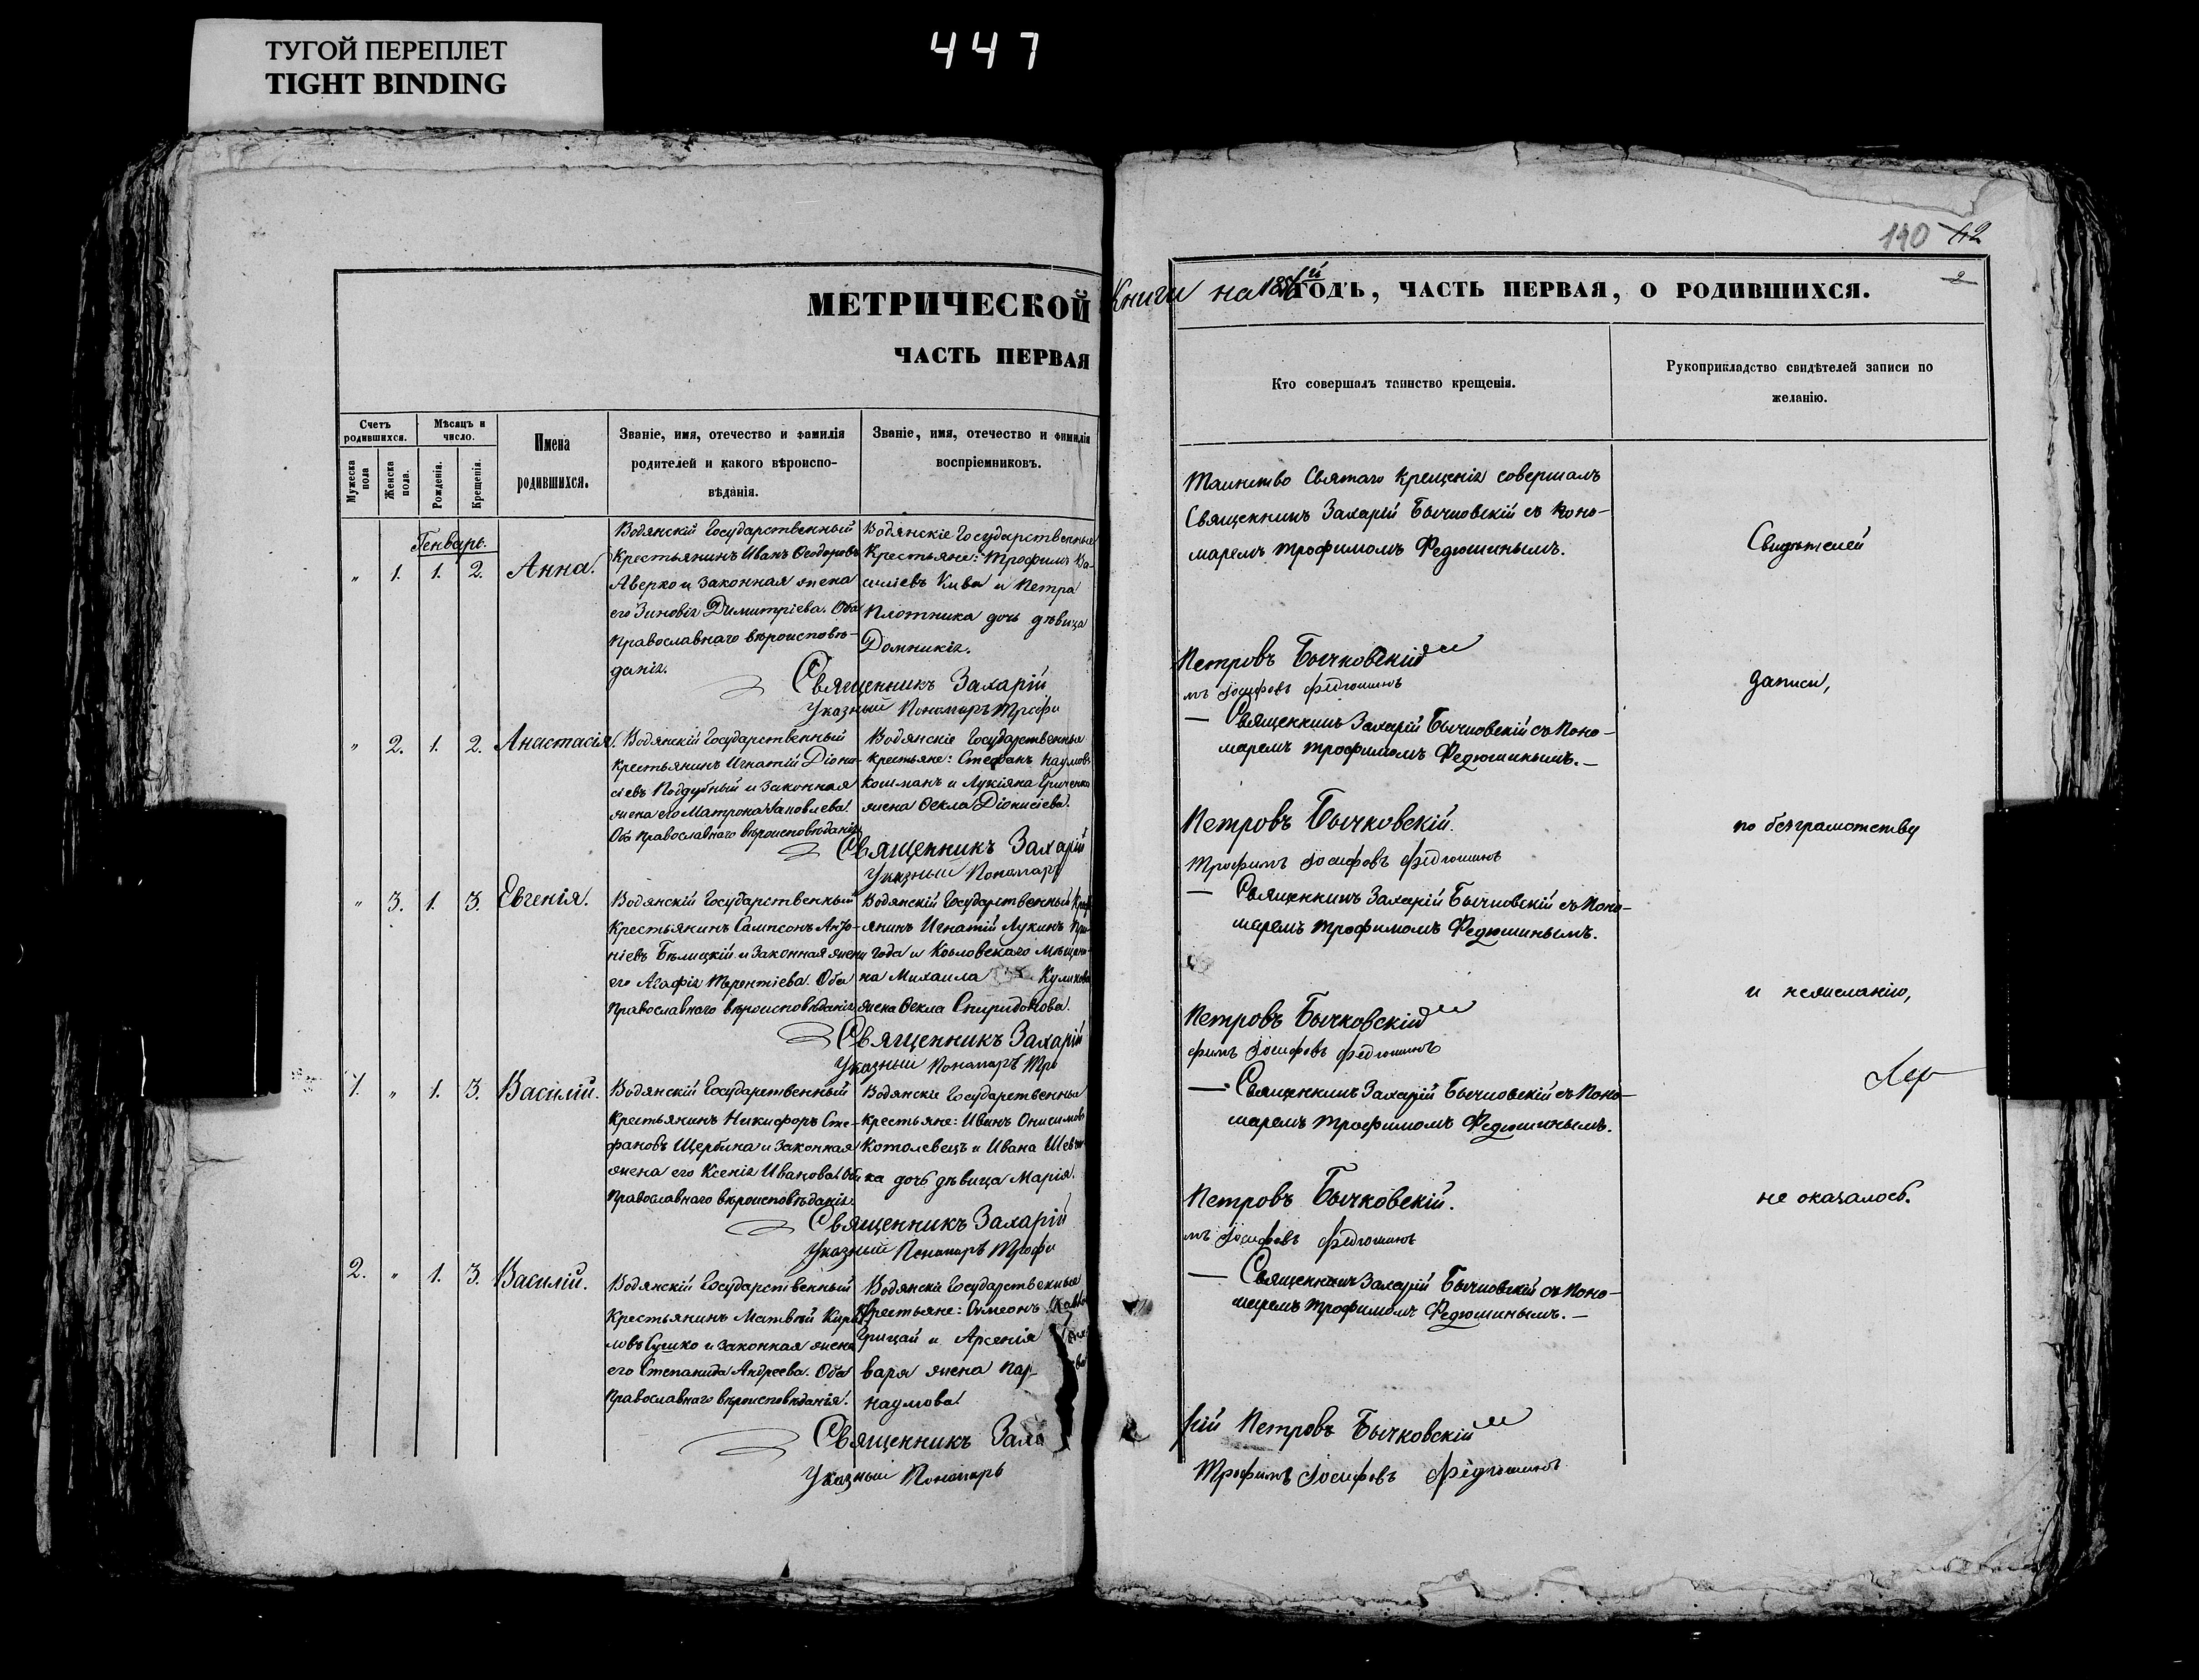 ТУГОЙ ПЕРЕПЛЕТ
TIGHT BINDING
447
МЕТРИЧЕСКОЙ
ЧАСТЬ ПЕРВАЯ
Счетъ родившихся.
Мѣсяцъ и число.
Мужеска пола
Женска пола.
Рожденія.
Крещенія.
Имена родившихся.
Званіе, имя, отечество и фамилія
родителей и какого вѣроиспо-
вѣданія.
Званіе, имя, отечество и фамилія
воспріемниковъ.
Генварь.
" 1. 1. 2. Анна.
Водянскій Государственный
Крестьянинъ Иванъ Ѳеодоровъ
Аверко и законная жена
его Зиновія Димитріева. Оба
Православнаго вѣроисповѣ-
данія.
Водянскіе Государственные
Крестьяне: Трофимъ Ва-
силіевъ Кива и Петра
Плотника дочь дѣвица
Домникія.
Священникъ Захарій
Указный Пономарь Трофи
" 2. 1. 2. Анастасія.
Водянскій Государственный
Крестьянинъ Игнатій Діони-
сіевъ Поддубный и законная
жена его Матрона Іаковлева.
Оба Православнаго вѣроисповѣданія.
Водянскіе Государственные
крестьяне: Стефанъ Наумовъ
Кошманъ и Лукіяна Гриченка
жена Ѳекла Діонисіева.
Священникъ Захарій
Указный Пономарь
" 3. 1. 3. Евгенія.
Водянскій Государственный
Крестьянинъ Сампсонъ
ніевъ Бѣлицкій и законная жена
его Агафія Терентіева. Оба
Православнаго вѣроисповѣданія
Водянскій Государственный
янинъ Игнатій Лукинъ При-
года и Козловскаго Мѣщани-
на Михаила Куликова
жена Ѳекла Спиридонова.
Священникъ Захарій
Указный Пономарь Тро
1. " 1. 3. Василій.
Водянскій Государственный
Крестьянинъ Никифоръ Сте-
фановъ Щербина и законная
жена его Ксенія Иванова. Оба
Православнаго вѣроисповѣданія.
Водянскіе Государственные
крестьяне: Иванъ Онисимовъ
Котолевецъ и Ивана Шевчен-
ка дочь дѣвица Марія.
Священникъ Захарій
Указный Пономарь Трофи
2. " 1. 3. Василій.
Водянскій Государственный
Крестьянинъ Матвѣй Кирил-
ловъ Сушко и законная жена
его Степанида Андреева. Оба
Православнаго вѣроисповѣданія.
Водянскіе Государственные
Крестьяне: Симеонъ
Грицай и Арсенія
варя жена
Наумова.
Священникъ Заха
Указный Пономарь
190 42
2
Книги на 18 ГОДЪ, ЧАСТЬ ПЕРВАЯ, О РОДИВШИХСЯ.
Кто совершалъ таинство крещенія.
Рукоприкладство свидѣтелей записи по
желанію.
Таинство Святаго Крещенія совершалъ
Священникъ Захарій Бычковскій съ Поно-
маремъ Трофимомъ Федюшинымъ.
Свидѣтелей
Петровъ Бычковскій
мъ Іосифовъ Федюшинъ
записи,
— Священникъ Захарій Бычковскій съ Поно-
маремъ Трофимомъ Федюшинымъ.—
Петровъ Бычковскій.
Трофимъ Іосифовъ Федюшинъ
по безграмотству
— Священникъ Захарій Бычковскій съ Поно-
маремъ Трофимомъ Федюшинымъ.
и нежеланію,
Петровъ Бычковскій
фимъ Іосифовъ Федюшинъ
— Священникъ Захарій Бычковскій съ Поно-
маремъ Трофимомъ Федюшинымъ.
Петровъ Бычковскій.
мъ Іосифовъ Федюшинъ
не оказалось.
— Священникъ Захарій Бычковскій съ Поно-
маремъ Трофимомъ Федюшинымъ.—
рій Петровъ Бычковскій
Трофимъ Іосифовъ Федюшинъ